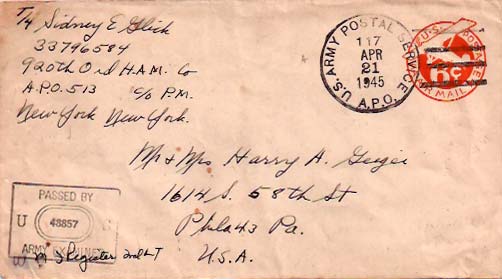 T/4 Sidney E Glick
33796584
920th Ord H.A.M. Co
A.P.O. 513 c/o P.M.
New York New York.
U.S. ARMY POSTAL SERVICE
117
APR
21
1945
A.P.O.
U.S. POSTAGE
6c
AIR MAIL
Mr & Mrs Harry A. Geiger
1614 S. 58th St
Phila 43 Pa.
U.S.A.
PASSED BY
U 48857 S
ARMY EXAMINER
Register 2nd LT